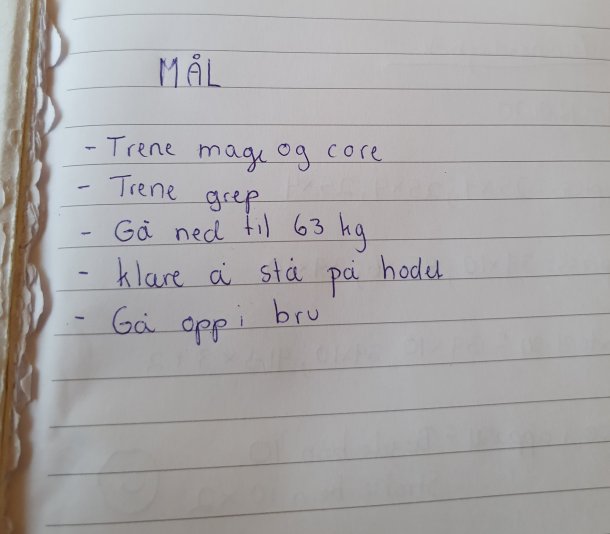 MÅL
- Trene mage og core
- Trene grep
- Gå ned til 63 kg
- klare å stå på hodet
- Gå opp i bru